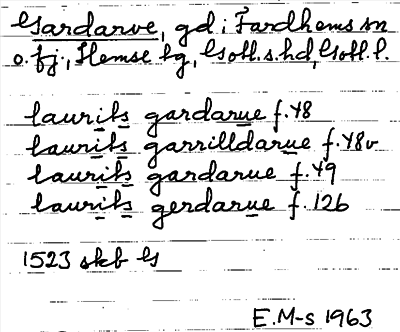 Gardarve, gd i Fardhems sn
o. fj., Hemse tg, Gotl.s.hd, Gotl.l.
laurits gardarue f.48
laurits garrilldarue f.48v
laurits gardarue f.49
laurits gerdarue f.126
1523 skb G
E.M-s 1963